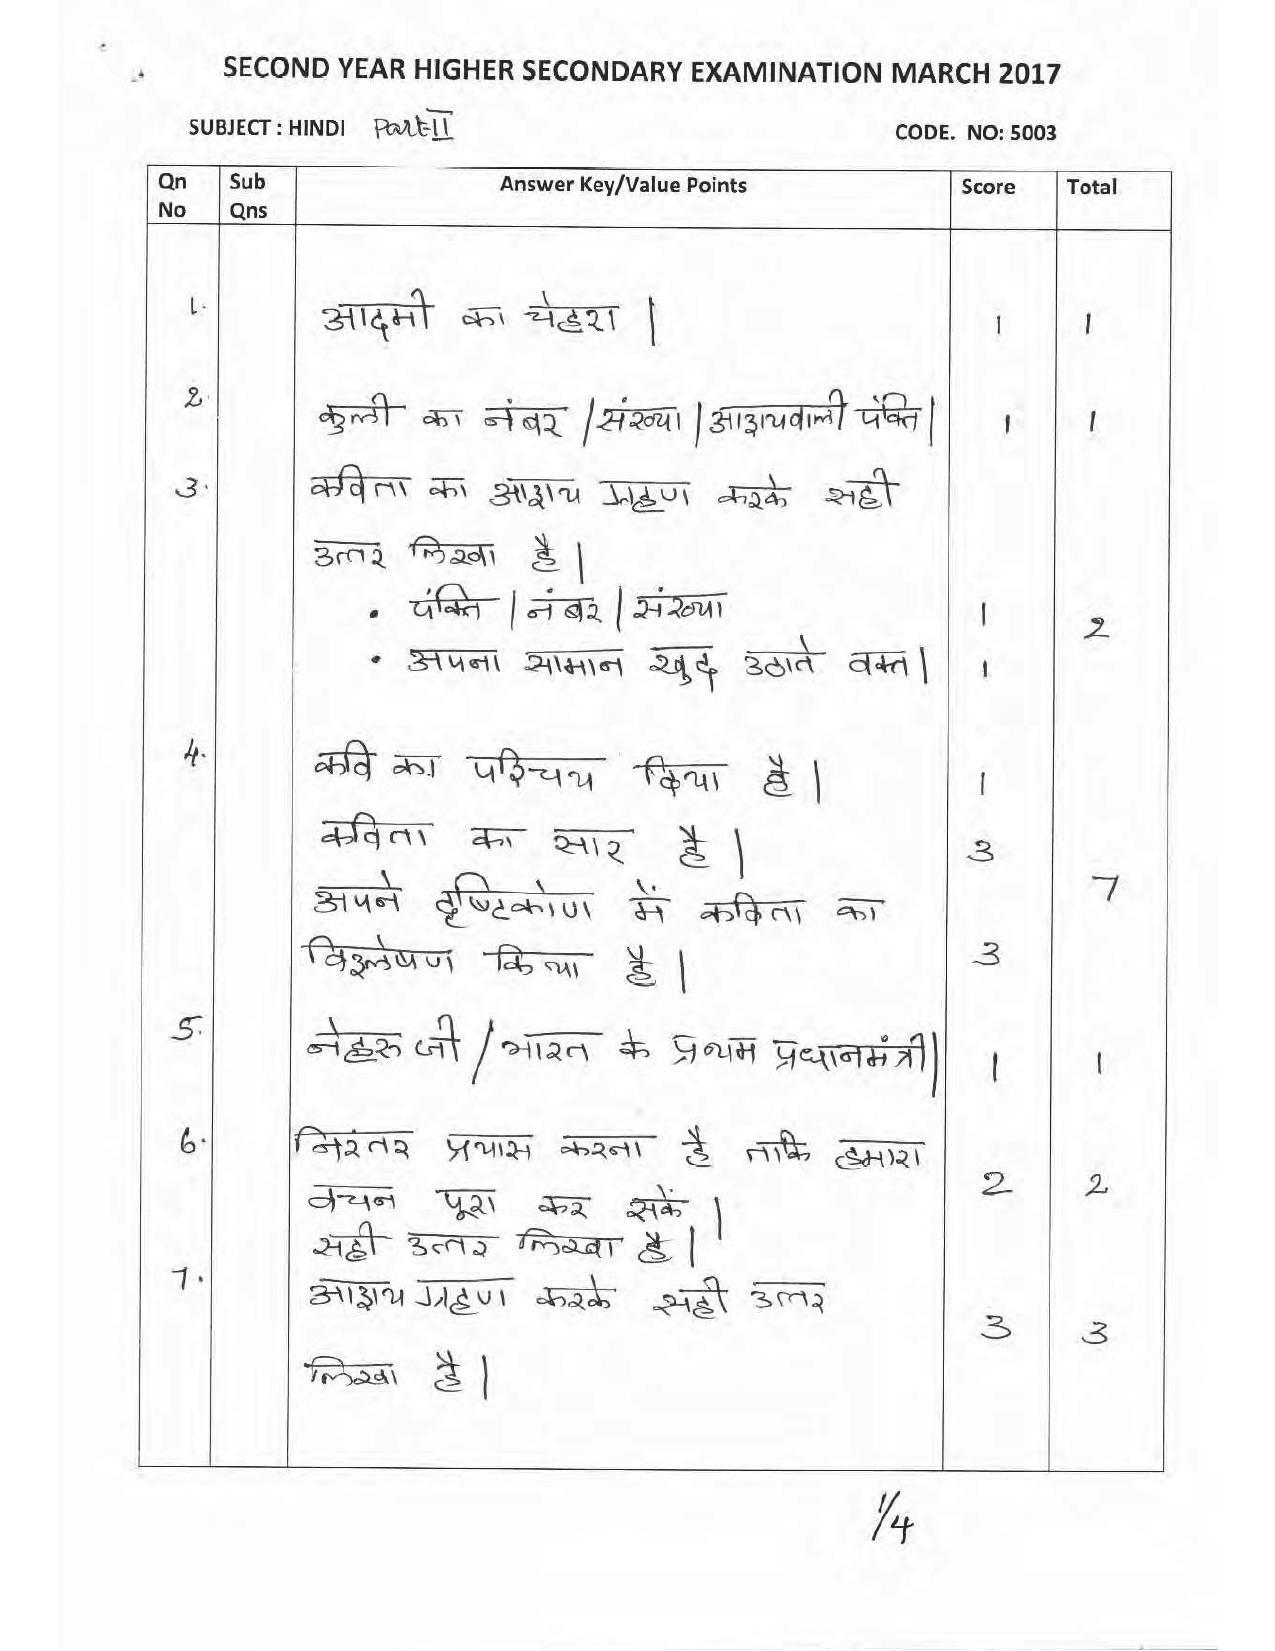 SECOND YEAR HIGHER SECONDARY EXAMINATION MARCH 2017
SUBJECT : HINDI Part-II CODE. NO: 5003
Qn No Sub Qns Answer Key/Value Points Score Total
1. आदमी का चेहरा | 1 1
2. कुली का नंबर / संख्या | आशयवाली पंक्ति | 1 1
3. कविता का आशय ग्रहण करके सही
उत्तर लिखा है |
• पंक्ति | नंबर | संख्या 1
2
• अपना सामान खुद उठाते वक्त | 1
4. कवि का परिचय किया है | 1
कविता का सार है | 3
7
अपने दृष्टिकोण में कविता का
विश्लेषण किया है | 3
5. नेहरू जी / भारत के प्रथम प्रधानमंत्री | 1 1
6. निरंतर प्रयास करना है ताकि हमारा
वचन पूरा कर सकें | 2 2
सही उत्तर लिखा है |
7. आशय ग्रहण करके सही उत्तर
3 3
लिखा है |
1/4